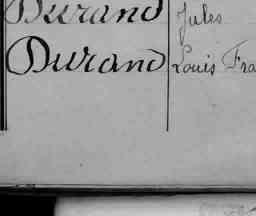 Durand Jules
Durand Louis Fra